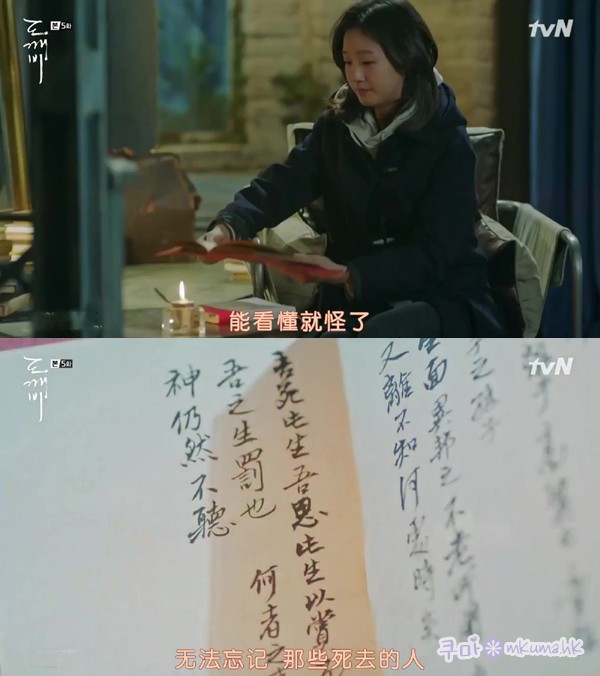 도깨비
본 5화
tvN
能看懂就怪了
도깨비
본 5화
tvN
面異邦之不老
又離不知何處時
此生吾思此生以嘗
吾之生罰也 何者之
神仍然不聽
无法忘记 那些死去的人
쿠마 mkuma.hk